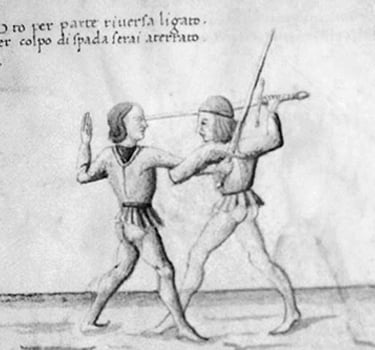 O to per parte riuersa ligato.
er colpo di spada serai aterrato.